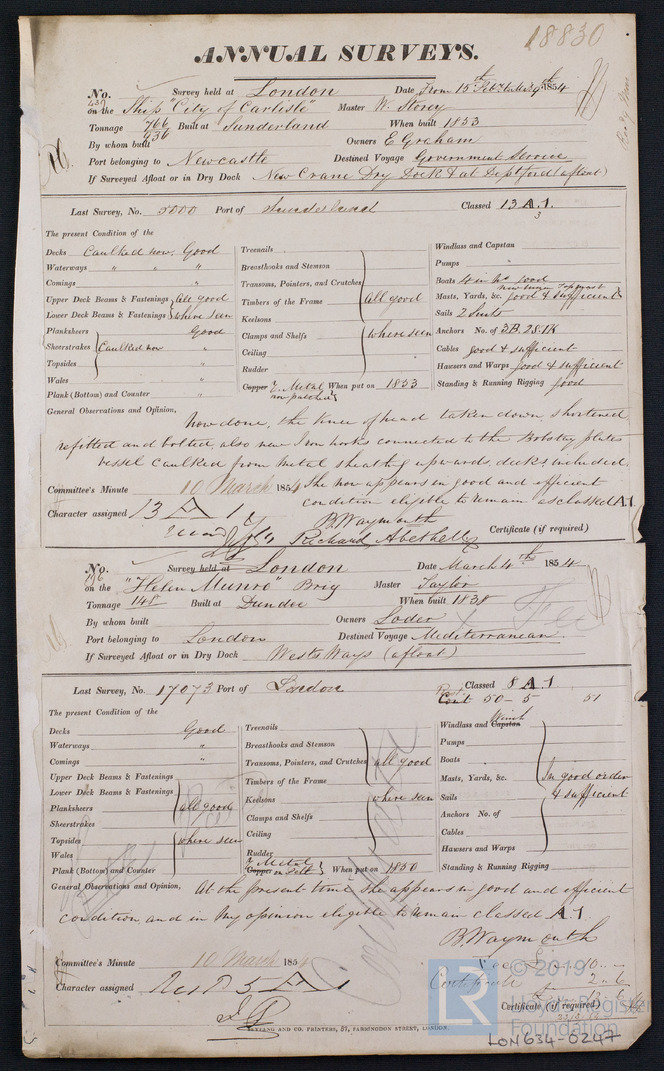 18830
ANNUAL SURVEYS.
No. 437 Survey held at London Date, From 15th Feby to Mar 9th 1854
on the Ship "City of Carlisle" Master W. Storey
Tonnage 766 936 Built at Sunderland When built 1853
By whom built Owners E Graham
Port belonging to Newcastle Destined Voyage Government Service
If Surveyed Afloat or in Dry Dock New Crane Dry Dock & at Deptford (afloat)
Last Survey, No. 5000 Port of Sunderland Classed 13 A.1.
3
The present Condition of the
Decks Caulked now. Good
Waterways " " "
Comings "
Upper Deck Beams & Fastenings } all good
Lower Deck Beams & Fastenings } where seen
Planksheers Good
Sheerstrakes } Caulked now "
Topsides "
Wales "
Plank (Bottom) and Counter "
Treenails
Breasthooks and Stemson
Transoms, Pointers, and Crutches
Timbers of the Frame } all good
Keelsons
Clamps and Shelfs } where seen
Ceiling
Rudder
Copper Y. Metal When put on 1853
now patched
Windlass and Capstan
Pumps "
Boats 4 in No good
new
Masts, Yards, &c. good & sufficient
Sails 2 Suits
Anchors No. of 3B. 2S. 1K
Cables good & sufficient
Hawsers and Warps good & sufficient
Standing & Running Rigging good
General Observations and Opinion,
Now done, the knee of head taken down, shortened
refitted and bolted, also new Iron hooks connected to the Bobstay plates
Vessel Caulked from Metal sheathing upwards, decks included.
She now appears in good and efficient
condition eligible to remain as classed A.1
Committee's Minute 10 March 1854
Character assigned 13 A 1
B. Waymouth
Richard Abethell
Certificate (if required)
No. 796 Survey held at London Date March 4th 1854
on the "Helen Munro" Brig Master Taylor
Tonnage 148 Built at Dundee When built 1838
By whom built Owners Loder
Port belonging to London Destined Voyage Mediterranean
If Surveyed Afloat or in Dry Dock Wests Ways (afloat)
Last Survey, No. 17073 Port of London Classed 8 A.1
Cont 50-5 51
The present Condition of the
Decks Good
Waterways "
Comings "
Upper Deck Beams & Fastenings
Lower Deck Beams & Fastenings
Planksheers } all good
Sheerstrakes
Topsides } where seen
Wales
Plank (Bottom) and Counter
Treenails
Breasthooks and Stemson
Transoms, Pointers, and Crutches } all good
Timbers of the Frame
Keelsons } where seen
Clamps and Shelfs
Ceiling
Rudder
Copper Y. Metal on Felt } When put on 1850
Windlass and Capstan Winch
Pumps
Boats
Masts, Yards, &c. } In good order
Sails & sufficient
Anchors No. of
Cables
Hawsers and Warps
Standing & Running Rigging
General Observations and Opinion, At the present time she appears in good and efficient
condition and in my opinion eligible to remain classed A.1
B. Waymouth
Committee's Minute 10 March 1854
Character assigned Rest d 5 A 1
Fee £ 10 --
Certificate 2 - 6
£ 12 - 6
Certificate (if required)
AND CO. PRINTERS, 57, FARRINGDON STREET, LONDON.
LR © 2019
Lloyd's Register
Foundation
LON634-0247